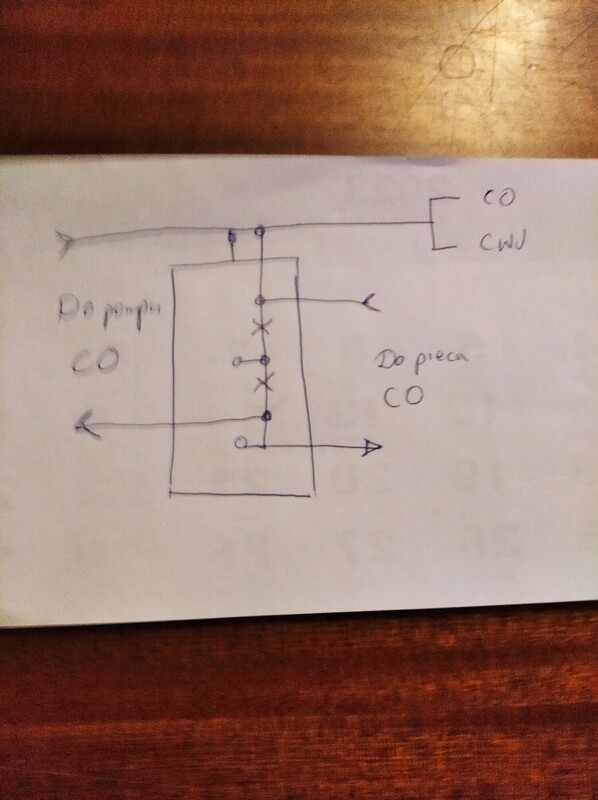 CO
CWU
Do pompy
CO
Do pieca
CO